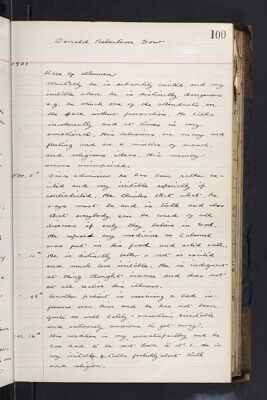 100
Donald Robertson Gow
1901
trace of albumen.
Mentally he is absolutely excited and very
irritable when he is distinctly dangerous
e.g. he struck one of the attendants on
the face without provocation. He talks
incoherently and at times is very
emotional. His delusions are many and
fleeting and are a mixture of
and religious ideas. His memory
seems unimpaired.
Since admission he has been rather
and very irritable especially if
contradicted. He thinks that what he
says must be and is truth and also
that everybody can be cured of all
diseases if only they believe in God.
He refused any medicine so Calomel
was put in his food and acted well.
He is distinctly better - not so excited
and much less irritable. He is indignant
at being thought insane and does not
at all realise his illness.
Another patient is exercising a bad in-
fluence over him and he has not been
quite so well lately - sometimes irritable
and extremely anxious to get away.
His condition is very unsatisfactory and he
has had to be sent down to 1. He is
very irritable & talks foolishly about truth
and religion.